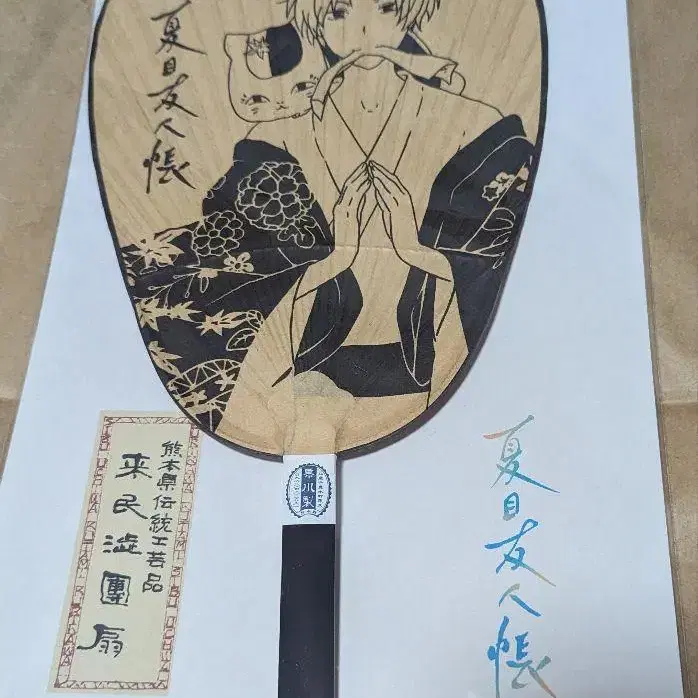 夏目友人帳
熊本県伝統工芸品
来民渋團扇
栗川製
夏目友人帳